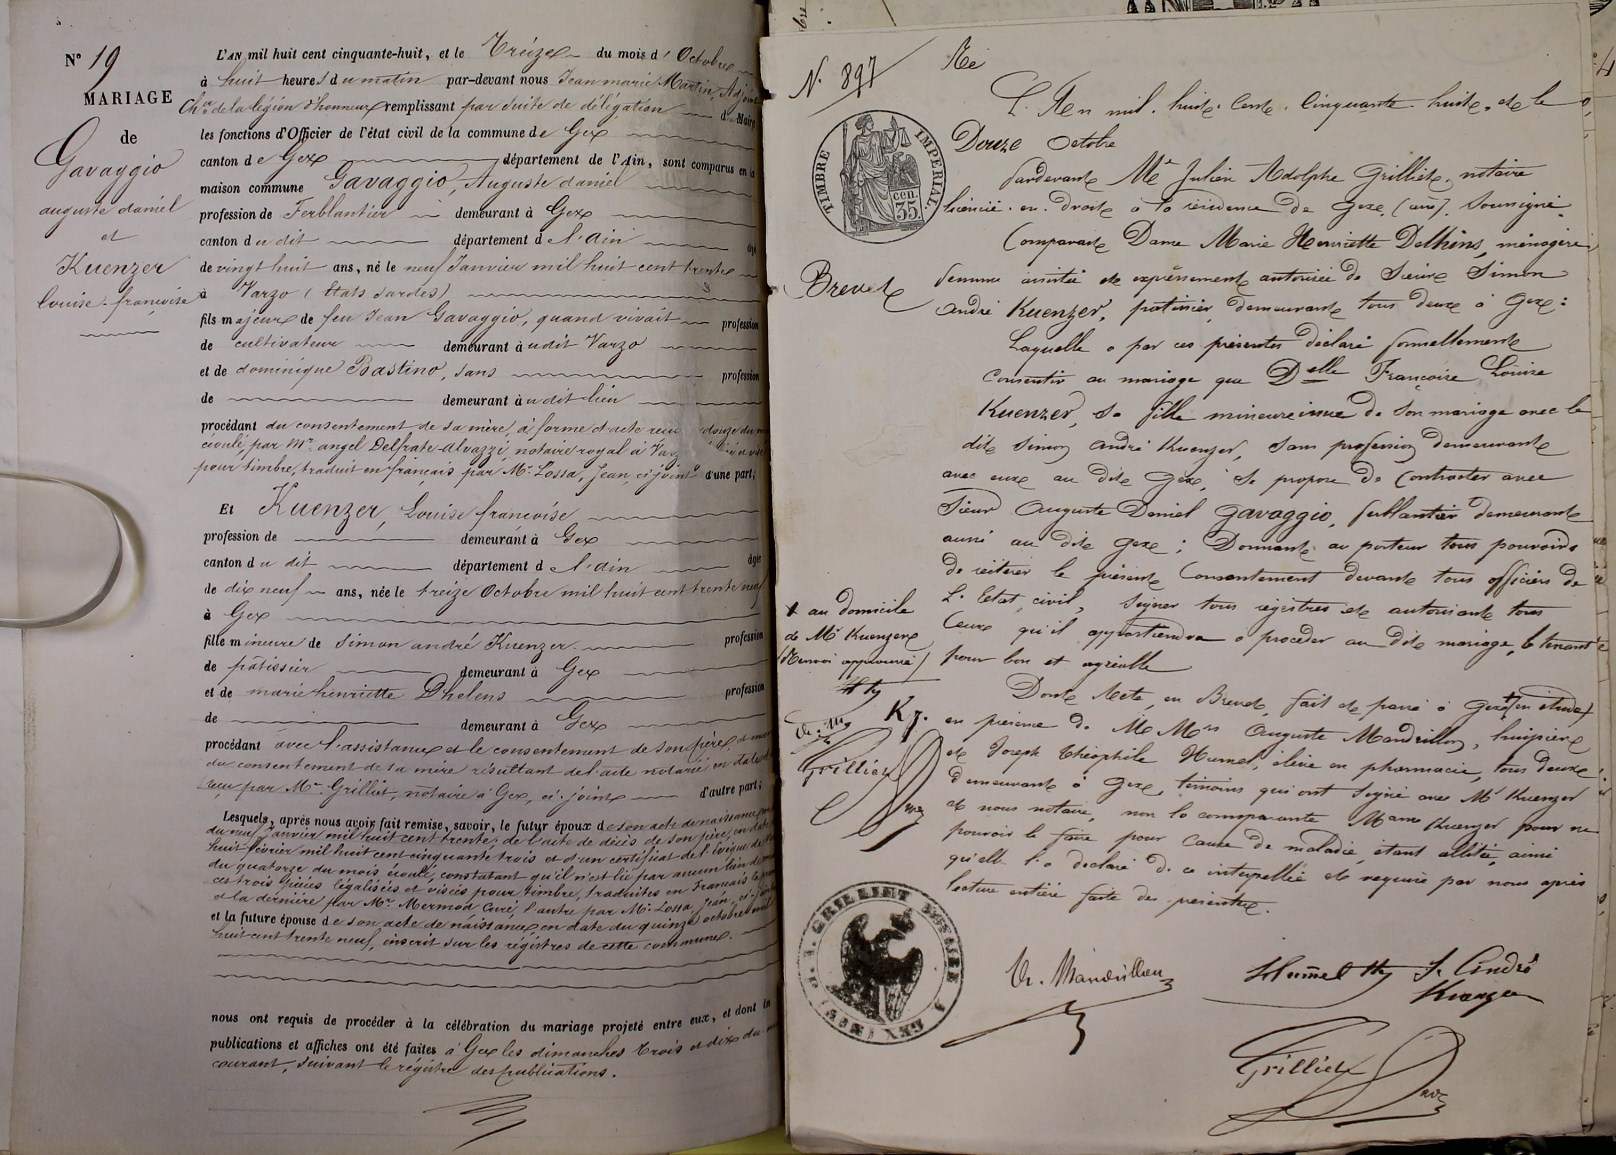 N° 19
MARIAGE
de
Gavaggio
auguste daniel
et
Kuenzer
louise-françoise
L'AN mil huit cent cinquante-huit, et le Treize du mois d'Octobre
à huit heures du matin par-devant nous Jean marie Martin, Adjoint
Ch.er de la légion d'honneur remplissant par suite de délégation du Maire
les fonctions d'Officier de l'état civil de la commune de Gex
canton de Gex département de l'Ain, sont comparus en la
maison commune Gavaggio, Auguste daniel
profession de Ferblantier demeurant à Gex
canton du dit département de l'ain âgé
de vingt huit ans, né le neuf Janvier mil huit cent trente
à Varzo (États sardes)
fils majeur de feu Jean Gavaggio, quand vivait profession
de cultivateur demeurant à udit Varzo
et de dominique Bastino, sans profession
de demeurant à udit lieu
procédant du consentement de sa mère, à forme d'acte reçu douze du
écoulé, par Mr. angel Delfrate-alvazzi, notaire royal à
pour timbre, traduit en français par Mr. Lossa, Jean, ci-joint d'une part;
Et Kuenzer, Louise françoise
profession de demeurant à Gex
canton du dit département de l'ain âgée
de dix neuf ans, née le treize Octobre mil huit cent trente neuf
à Gex
fille mineure de Simon andré Kuenzer profession
de pâtissier demeurant à Gex
et de marie henriette Dhelens profession
de demeurant à Gex
procédant avec l'assistance et le consentement de son père, et
du consentement de sa mère résultant de l'acte notarié en date
reçu par Mr. Grilliet, notaire à Gex, ci-joint d'autre part;
Lesquels, après nous avoir fait remise, savoir, le futur époux de son acte de naissance
du neuf Janvier mil huit cent trente; de l'acte de décès de son père, en date
huit février mil huit cent cinquante trois et d'un certificat de l'
du quatorze du mois écoulé, constatant qu'il n'est lié par aucun lien de
ces trois pièces légalisées et visées pour timbre, traduites en français la
et la dernière par Mr. Mermod Curé, l'autre par Mr. Lossa Jean, ci-
et la future épouse de son acte de naissance, en date du quinze octobre mil
huit cent trente neuf, inscrit sur les régistres de cette commune.
nous ont requis de procéder à la célébration du mariage projeté entre eux, et dont les
publications et affiches ont été faites à Gex les dimanches trois et dix du
courant, suivant le régistre des publications.
N. 897
TIMBRE IMPERIAL.
35 cen
Brevet
L'An mil huit cent cinquante huit, et le
Douze octobre
Pardevant Me Julien Adolphe Grilliet, notaire
licencié en droit à la résidence de Gex, (ain), soussigné
Comparait Dame Marie Henriette Delhens, ménagère
femme assistée et expressément autorisée de Sieur Simon
andré Kuenzer, patissier, demeurant tous deux à Gex:
Laquelle a par ces présentes déclaré formellement
consentir au mariage que Delle Françoise Louise
Kuenzer, sa fille mineure issue de son mariage avec le
dit Simon André Kuenzer, sans profession demeurant
avec eux au dit Gex, se propose de contracter avec
Sieur Auguste Daniel Gavaggio, ferblantier demeurant
aussi au dit Gex; Donnant au porteur tous pouvoirs
de réitérer le présent consentement devant tous officiers de
L'Etat civil, signer tous régistres et autorisant tous
ceux qu'il appartiendra à procéder au dit mariage, le tenant
pour bon et agréable
Dont Acte, en Brevet, fait et passé à Gex
en présence de M Mrs Auguste Mandrillon, huissier
et Joseph Théophile Humel, élève en pharmacie, tous deux
demeurant à Gex, témoins qui ont signé avec Mr Kuenzer
et nous notaire, non la comparante Mame Kuenzer pour ne
pouvoir le faire pour cause de maladie, étant alitée, ainsi
qu'elle l'a déclaré de ce interpellée et requise par nous après
lecture entière faite des présentes.
x au domicile
de Mr Kuenzer
(Renvoi approuvé)
K
Grilliet
J. A. GRILLIET NOTAIRE A GEX (AIN)
A. Mandrillon
Humel th
S. André
Kuenzer
Grilliet